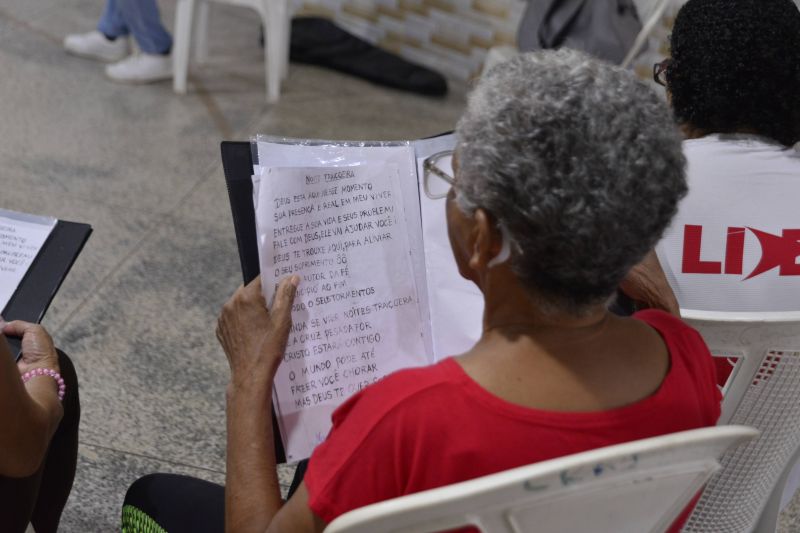 NOITE TRAIÇOEIRA
DEUS ESTÁ AQUI NESSE MOMENTO
SUA PRESENÇA É REAL EM MEU VIVER
ENTREGUE A SUA VIDA E SEUS PROBLEM
FALE COM DEUS, ELE VAI AJUDAR VOCÊ
DEUS TE TROUXE AQUI, PARA ALIVIAR
O SEU SOFRIMENTO
AUTOR DA FÉ
AO FIM
SEUS TORMENTOS
SE VIER NOITES TRAIÇOEIRA
A CRUZ PESADA FOR
CRISTO ESTARÁ CONTIGO
O MUNDO PODE ATÉ
FAZER VOCÊ CHORAR
MAS DEUS TE QUER SO
LIDE